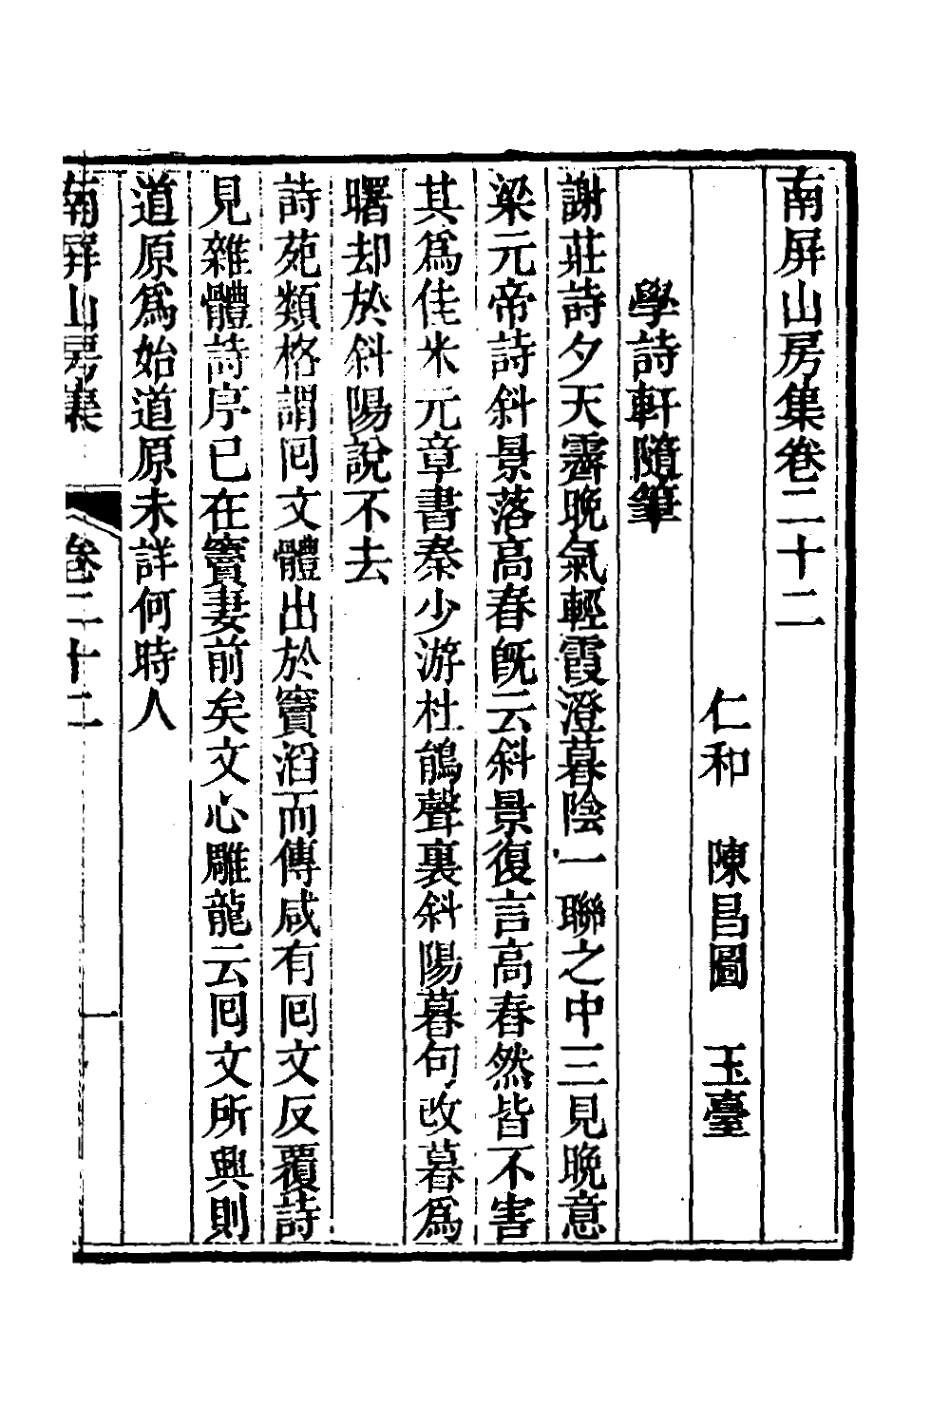 南屏山房集卷二十二
仁和 陳昌圖 玉臺
學詩軒隨筆
謝莊詩夕天霽晚氣輕霞澄暮陰一聯之中三見晚意
梁元帝詩斜景落高舂旣云斜景復言高舂然皆不害
其爲佳米元章書秦少游杜鵑聲裏斜陽暮句改暮爲
曙却於斜陽說不去
詩苑類格謂囘文體出於竇滔而傅咸有囘文反覆詩
見雜體詩序已在竇妻前矣文心雕龍云囘文所興則
道原爲始道原未詳何時人
南屏山房集 卷二十二 一